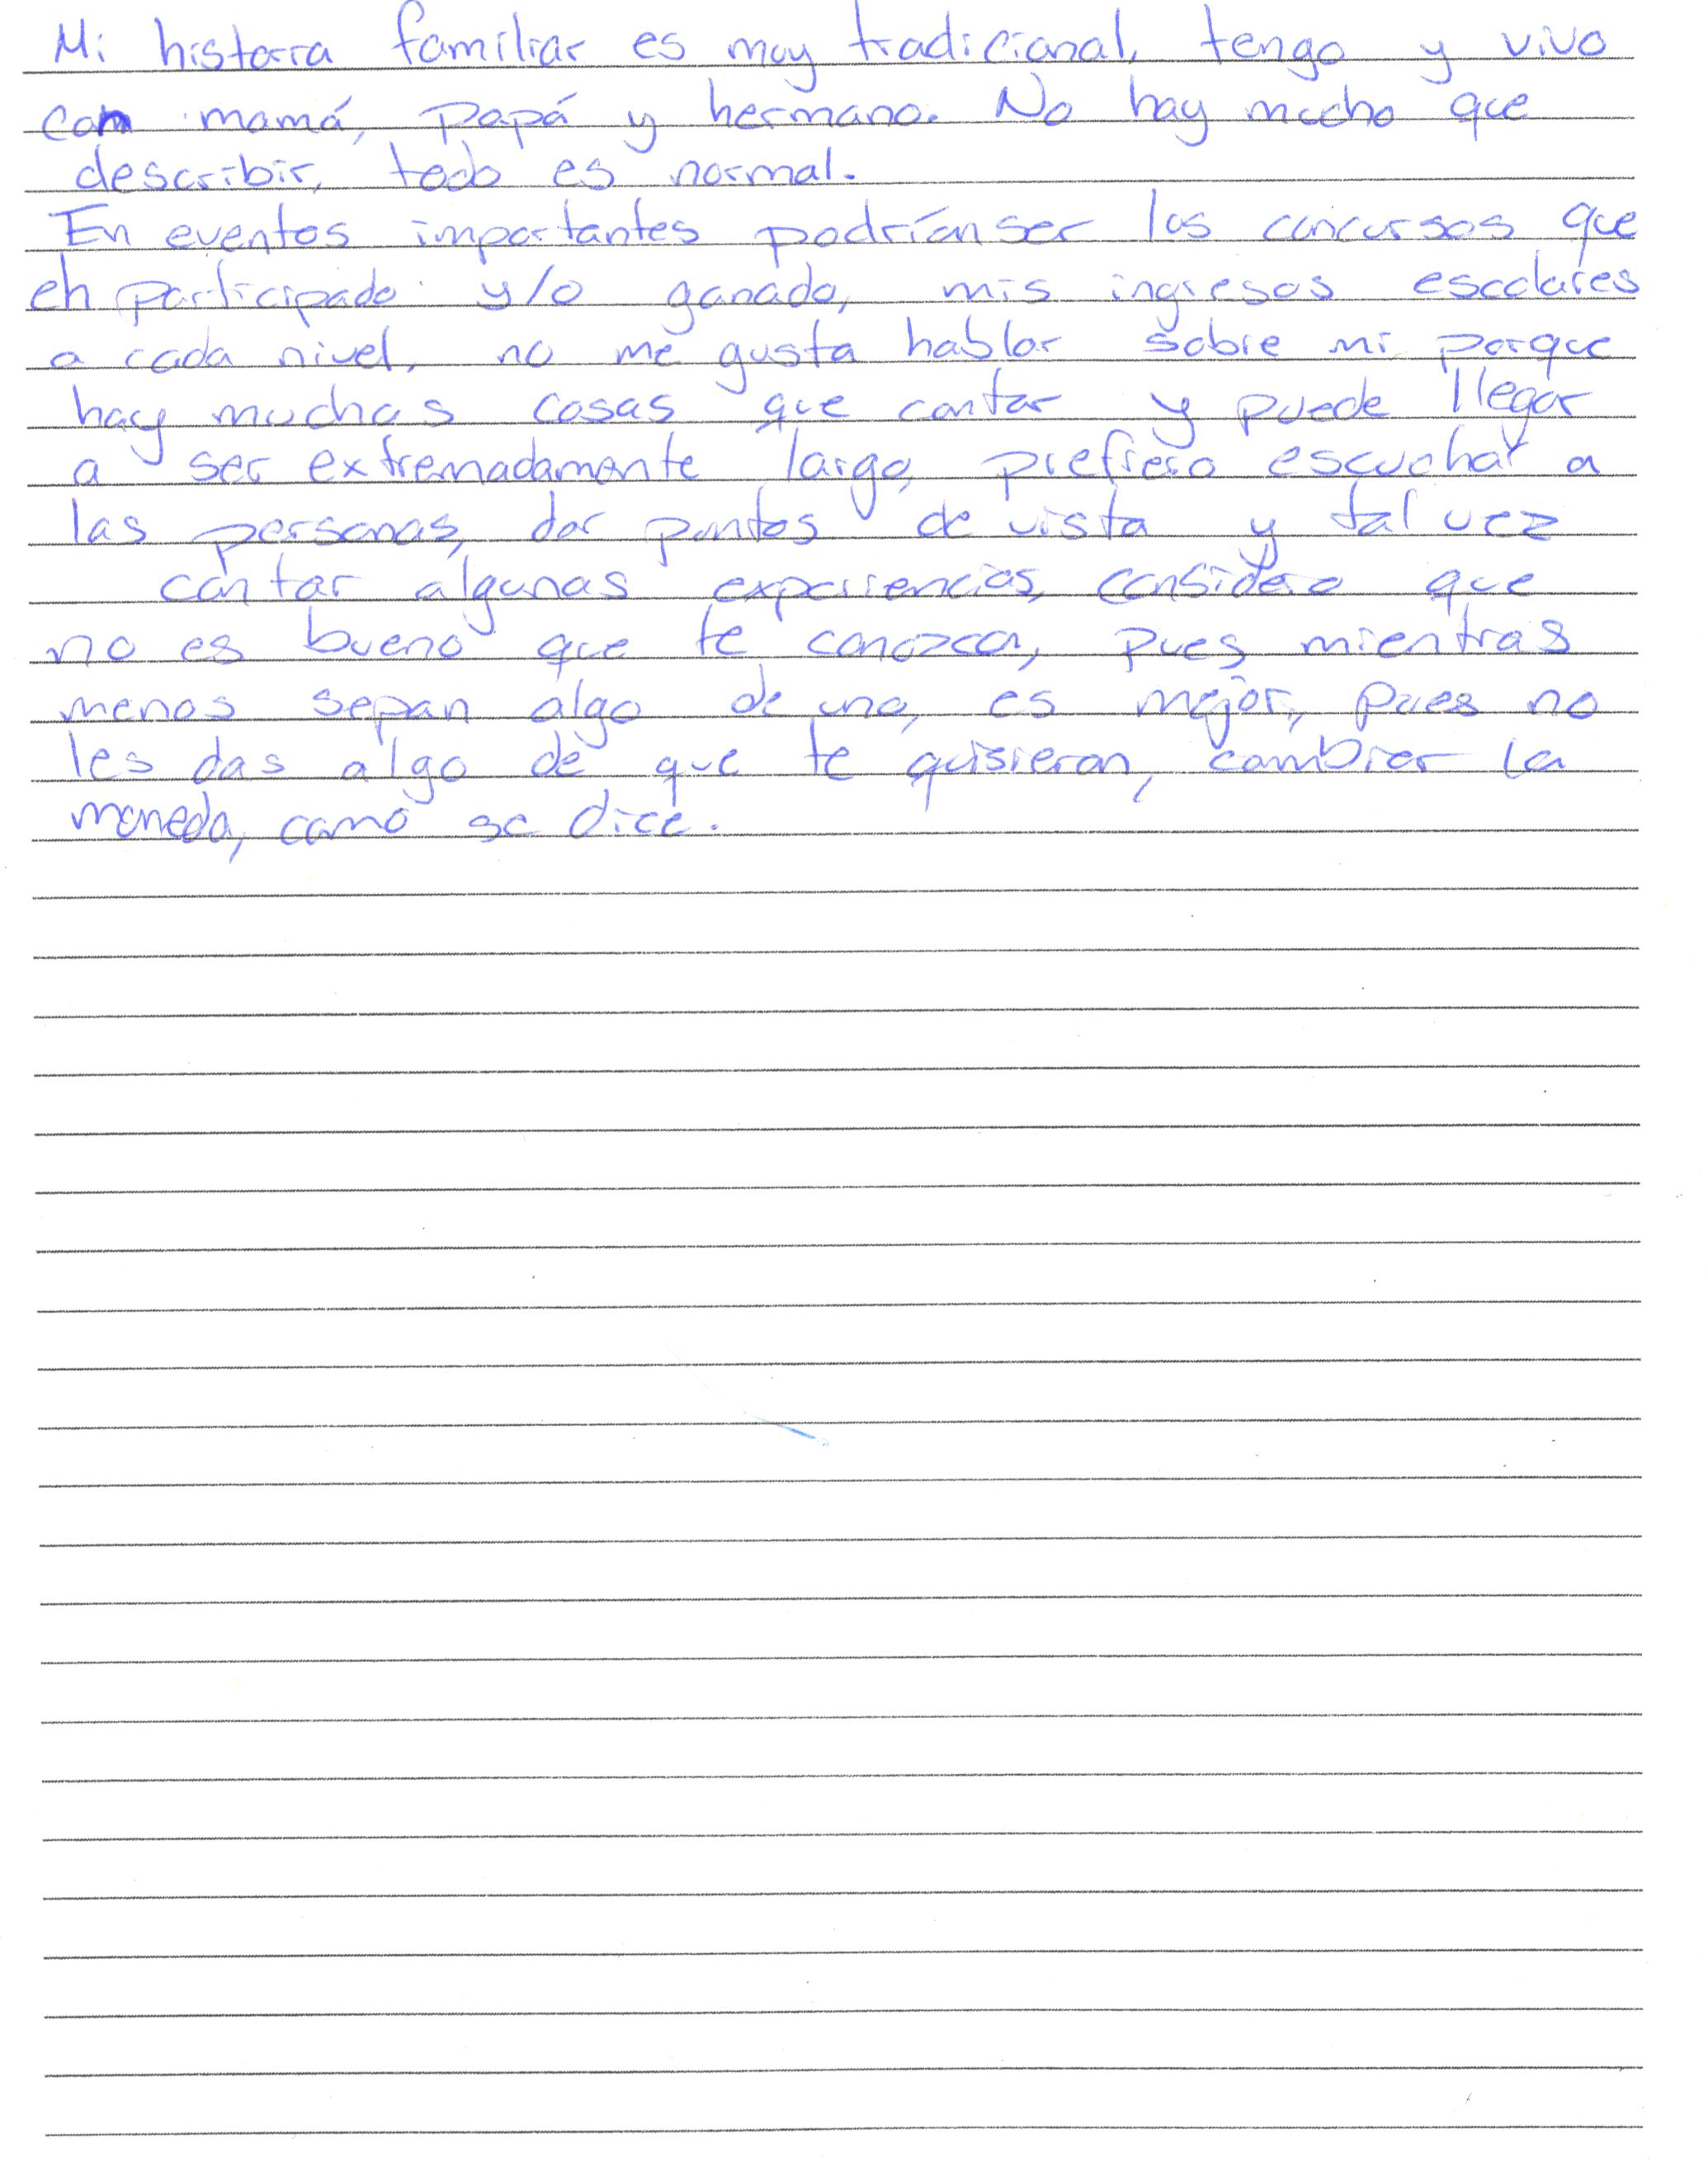 Mi historia familiar es muy tradicional, tengo y vivo
con mamá, papá y hermano. No hay mucho que
describir, todo es normal.
En eventos importantes podrían ser los concursos que
eh participado y/o ganado, mis ingresos escolares
a cada nivel, no me gusta hablar sobre mi porque
hay muchas cosas que contar y puede llegar
a ser extremadamente largo, prefiero escuchar a
las personas, dar puntos de vista y tal vez
contar algunas experiencias, considero que
no es bueno que te conozcan, pues mientras
menos sepan algo de uno, es mejor, pues no
les das algo de que te quisieran, cambiar la
moneda, como se dice.